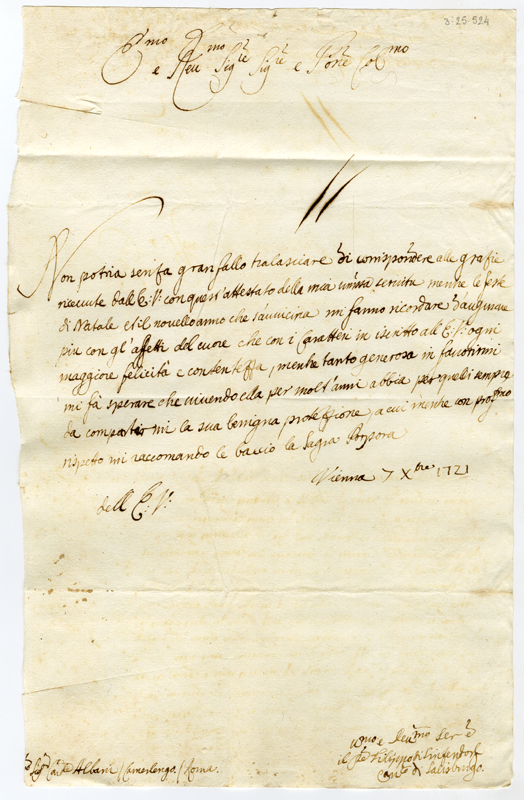 3-25-524
E.mo
e Reu.mo Sig.re Sig.re e Pa.ne Col.mo
Non potria senza gran fallo tralasciare di corrispondere alle grazie
riceuute dall E: V: con quest'attestato della mia seruitù mentre le feste
di Natale et il nouello anno che s'auuicina mi fanno ricordare d'augurare
piu con gl'affetti del cuore che con i Caratteri in iscritto all E: V: ogni
maggiore felicità e contentezza, mentre tanto generosa in fauorirmi
mi fà sperare che viuendo ella per molt'anni abbia per quelli sempre
da compartirmi la sua benigna protezzione, a cui mentre con
rispetto mi raccomando le baccio la Sagra Porpora
Vienna 7 Xbre 1721
dell E: V:
Albani / Camerlengo / Roma.
e Deu.mo Ser.e
il Filippo di Sinzendorf
Can.co di Salisburgo.